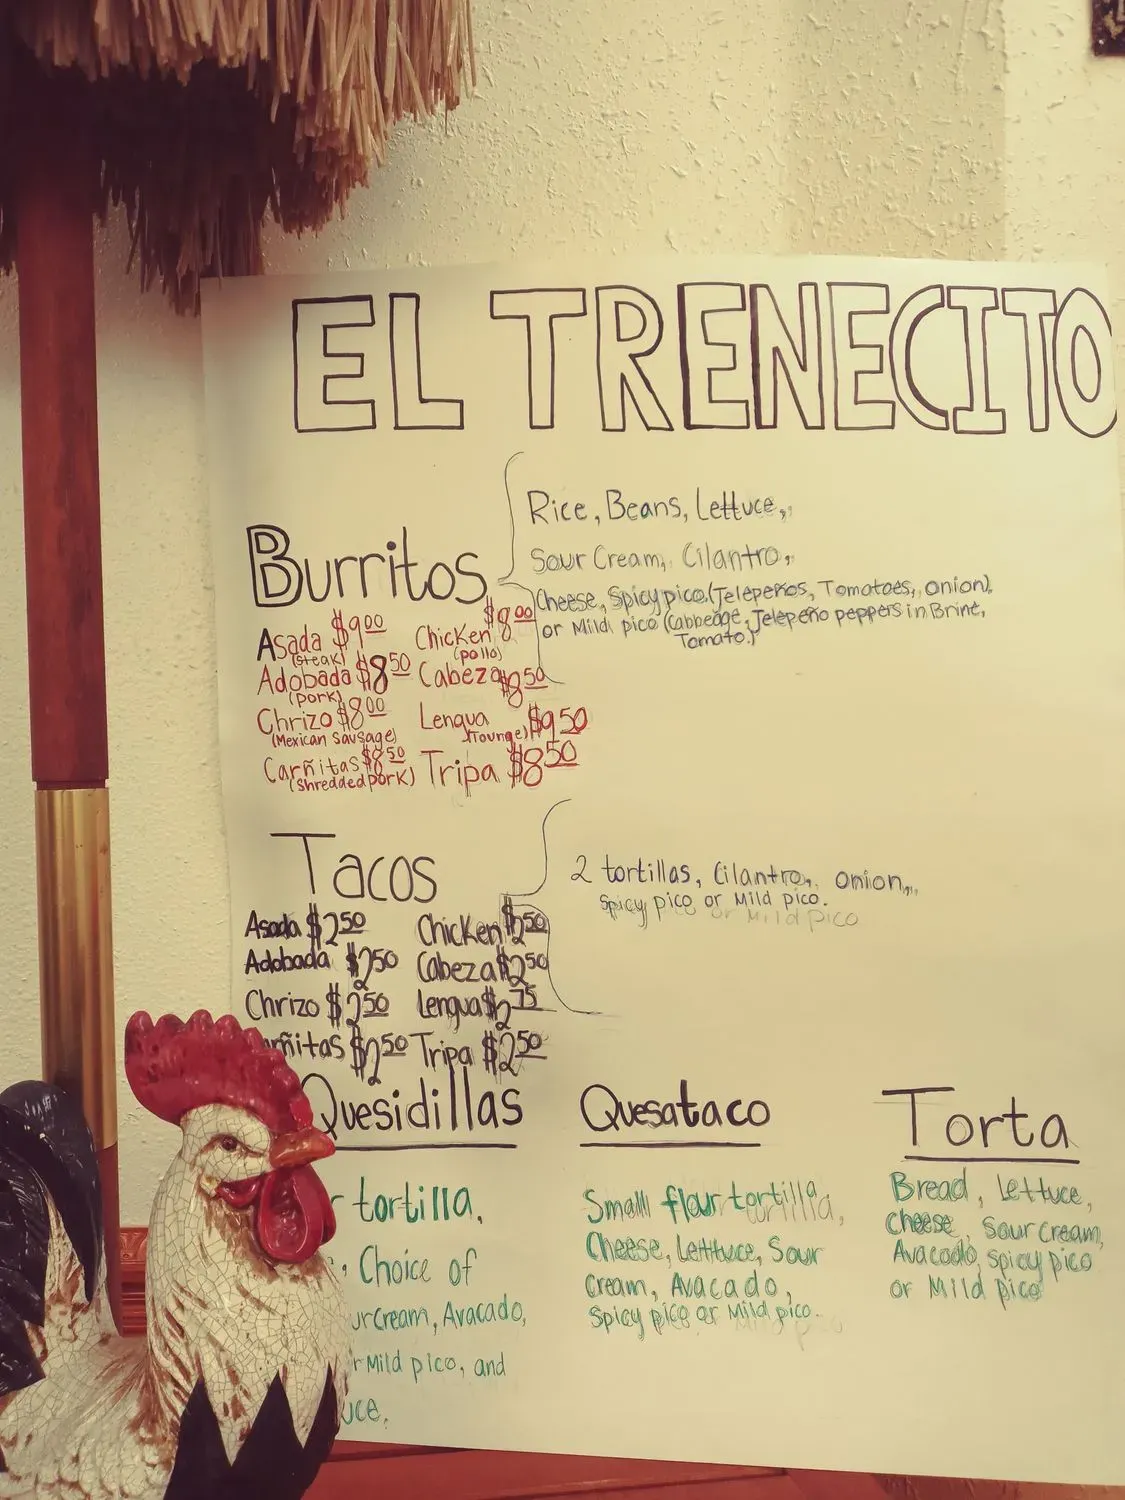 EL TRENECITO
Burritos
Rice, Beans, Lettuce,
Sour Cream, Cilantro,
Cheese, Spicy pico,(Jelepeños, Tomatoes, onion),
or Mild pico (Cabbeage, Jelepeño peppers in Brine,
Tomato.)
Asada $9.00 Chicken $8.00
(steak) (pollo)
Adobada $8.50 Cabeza $8.50
(pork)
Chrizo $8.00 Lengua $9.50
(Mexican Sausage) (Tounge)
Carñitas $8.50 Tripa $8.50
(shredded pork)
Tacos
2 tortillas, Cilantro, onion,
Spicy pico or Mild pico.
or Mild pico
Asada $2.50 Chicken $2.50
Adobada $2.50 Cabeza $2.50
Chrizo $2.50 Lengua $2.75
rñitas $2.50 Tripa $2.50
Quesidillas Quesataco Torta
r tortilla,
Choice of
ur Cream, Avacado,
r Mild pico, and
uce.
Small flour tortilla,
Cheese, Lettuce, Sour
Cream, Avacado,
Spicy pico or Mild pico.
Bread, Lettuce,
Cheese, Sour Cream,
Avacado, Spicy pico
or Mild pico